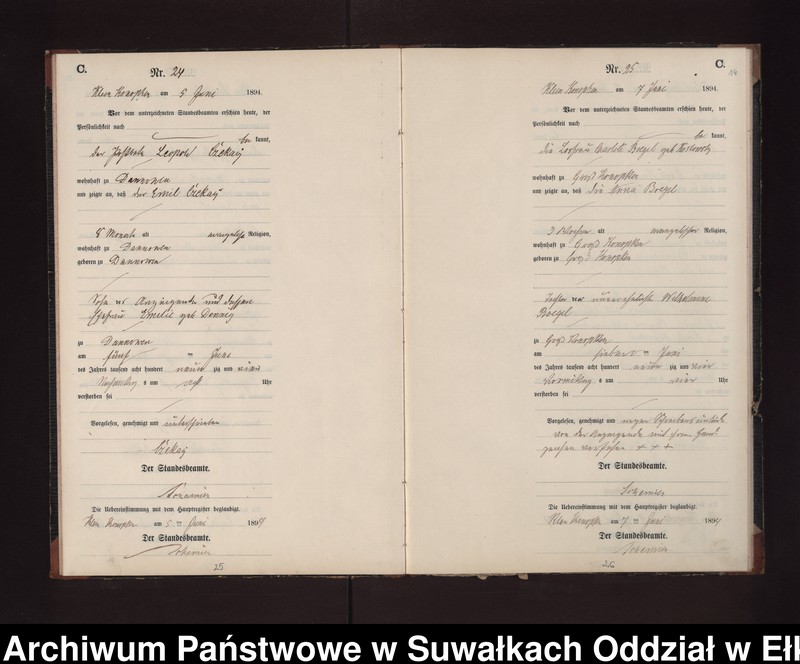 C.
Nr. 24
Klein Konopken am 5 Juni 1894.
Vor dem unterzeichneten Standesbeamten erschien heute, der
Persönlichkeit nach
be kannt,
der Leopold
wohnhaft zu Dannowen
und zeigte an, daß der Emil
8 Monate alt evangelischer Religion,
wohnhaft zu Dannowen
geboren zu Dannowen
Sohn des Anzeigenden und dessen
Ehefrau Emilie geb
zu Dannowen
am fünf ten Juni
des Jahres tausend acht hundert neun zig und vier
Nachmittag s um acht Uhr
verstorben sei
Vorgelesen, genehmigt und unterschrieben
Der Standesbeamte.
Die Uebereinstimmung mit dem Hauptregister beglaubigt.
Klein Konopken am 5 ten Juni 1894
Der Standesbeamte.
25
Nr. 25
C.
Klein Konopken am 7 Juni 1894.
Vor dem unterzeichneten Standesbeamten erschien heute, der
Persönlichkeit nach
be kannt,
die geb
wohnhaft zu Groß Konopken
und zeigte an, daß die Anna
3 Wochen alt evangelischer Religion,
wohnhaft zu Groß Konopken
geboren zu Groß Konopken
Tochter der unverehelichte Wilhelmine
zu Groß Konopken
am sieben ten Juni
des Jahres tausend acht hundert neun zig und vier
Vormittag s um vier Uhr
verstorben sei
Vorgelesen, genehmigt und wegen Schreibens
von der Anzeigende mit ihrem Hand
zeichen versehen + + +
Der Standesbeamte.
Die Uebereinstimmung mit dem Hauptregister beglaubigt.
Klein Konopken am 7 ten Juni 1894
Der Standesbeamte.
26
Archiwum Państwowe w Suwałkach Oddział w Ełk